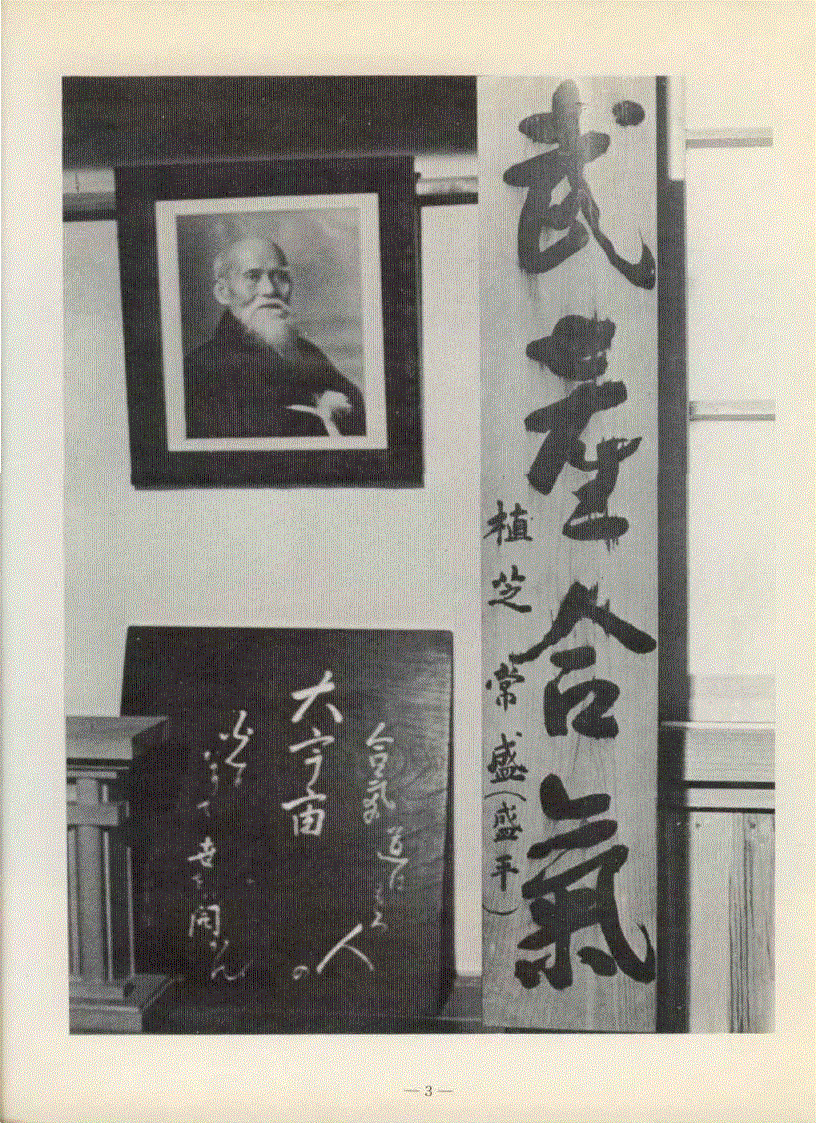 武産合氣
植芝常盛(盛平)
合氣道は
人の
大宇宙
世を開かん
— 3 —